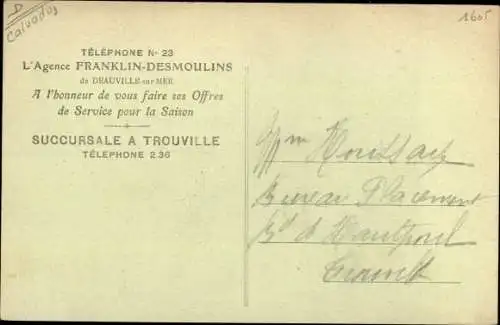 D
Calvados
1605
TÉLÉPHONE No 23
L'Agence FRANKLIN-DESMOULINS
de DEAUVILLE-sur-MER
A l'honneur de vous faire ses Offres
de Service pour la Saison
SUCCURSALE A TROUVILLE
TÉLÉPHONE 2.36
Bureau Placement
Bd d'Hautpoul
Trouville